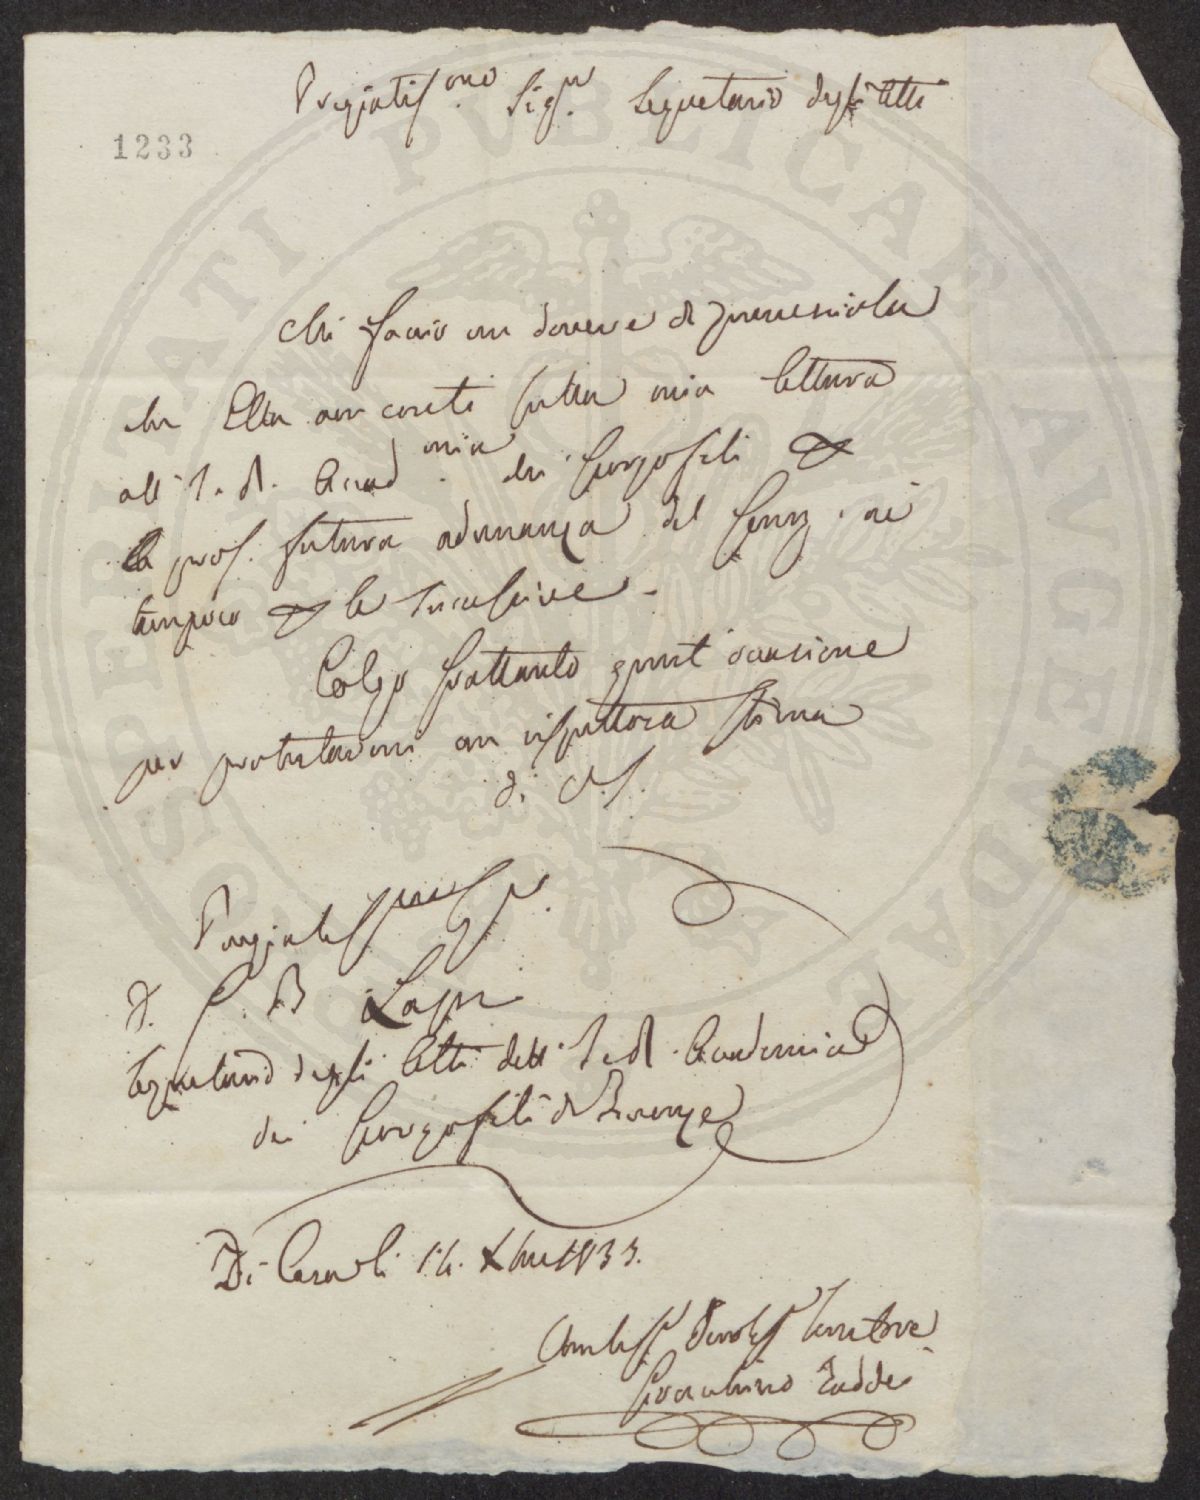 Pregiatis.mo Sig.r Segretario degli Atti
1233
Mi faccio un dovere di prevenirla
che Ella non conti sulla mia lettura
all'I. e R. Accad.mia dei Georgofili
pros. futura adunanza del ne
tampoco la successive.
Colgo frattanto quest'occasione
per protestarmi con rispettosa stima
di V.S.
Pregiatis Sig.r
G. B. Lapi
Segretario degli Atti dell'I. e R. Accademia
dei Georgofili di Firenze
Di Casa li 14. Xbre 1833.
Umiliss. Devotiss. Servitore
Gioacchino Taddei
PROSPERITATI PVBLICAE AVGENDAE